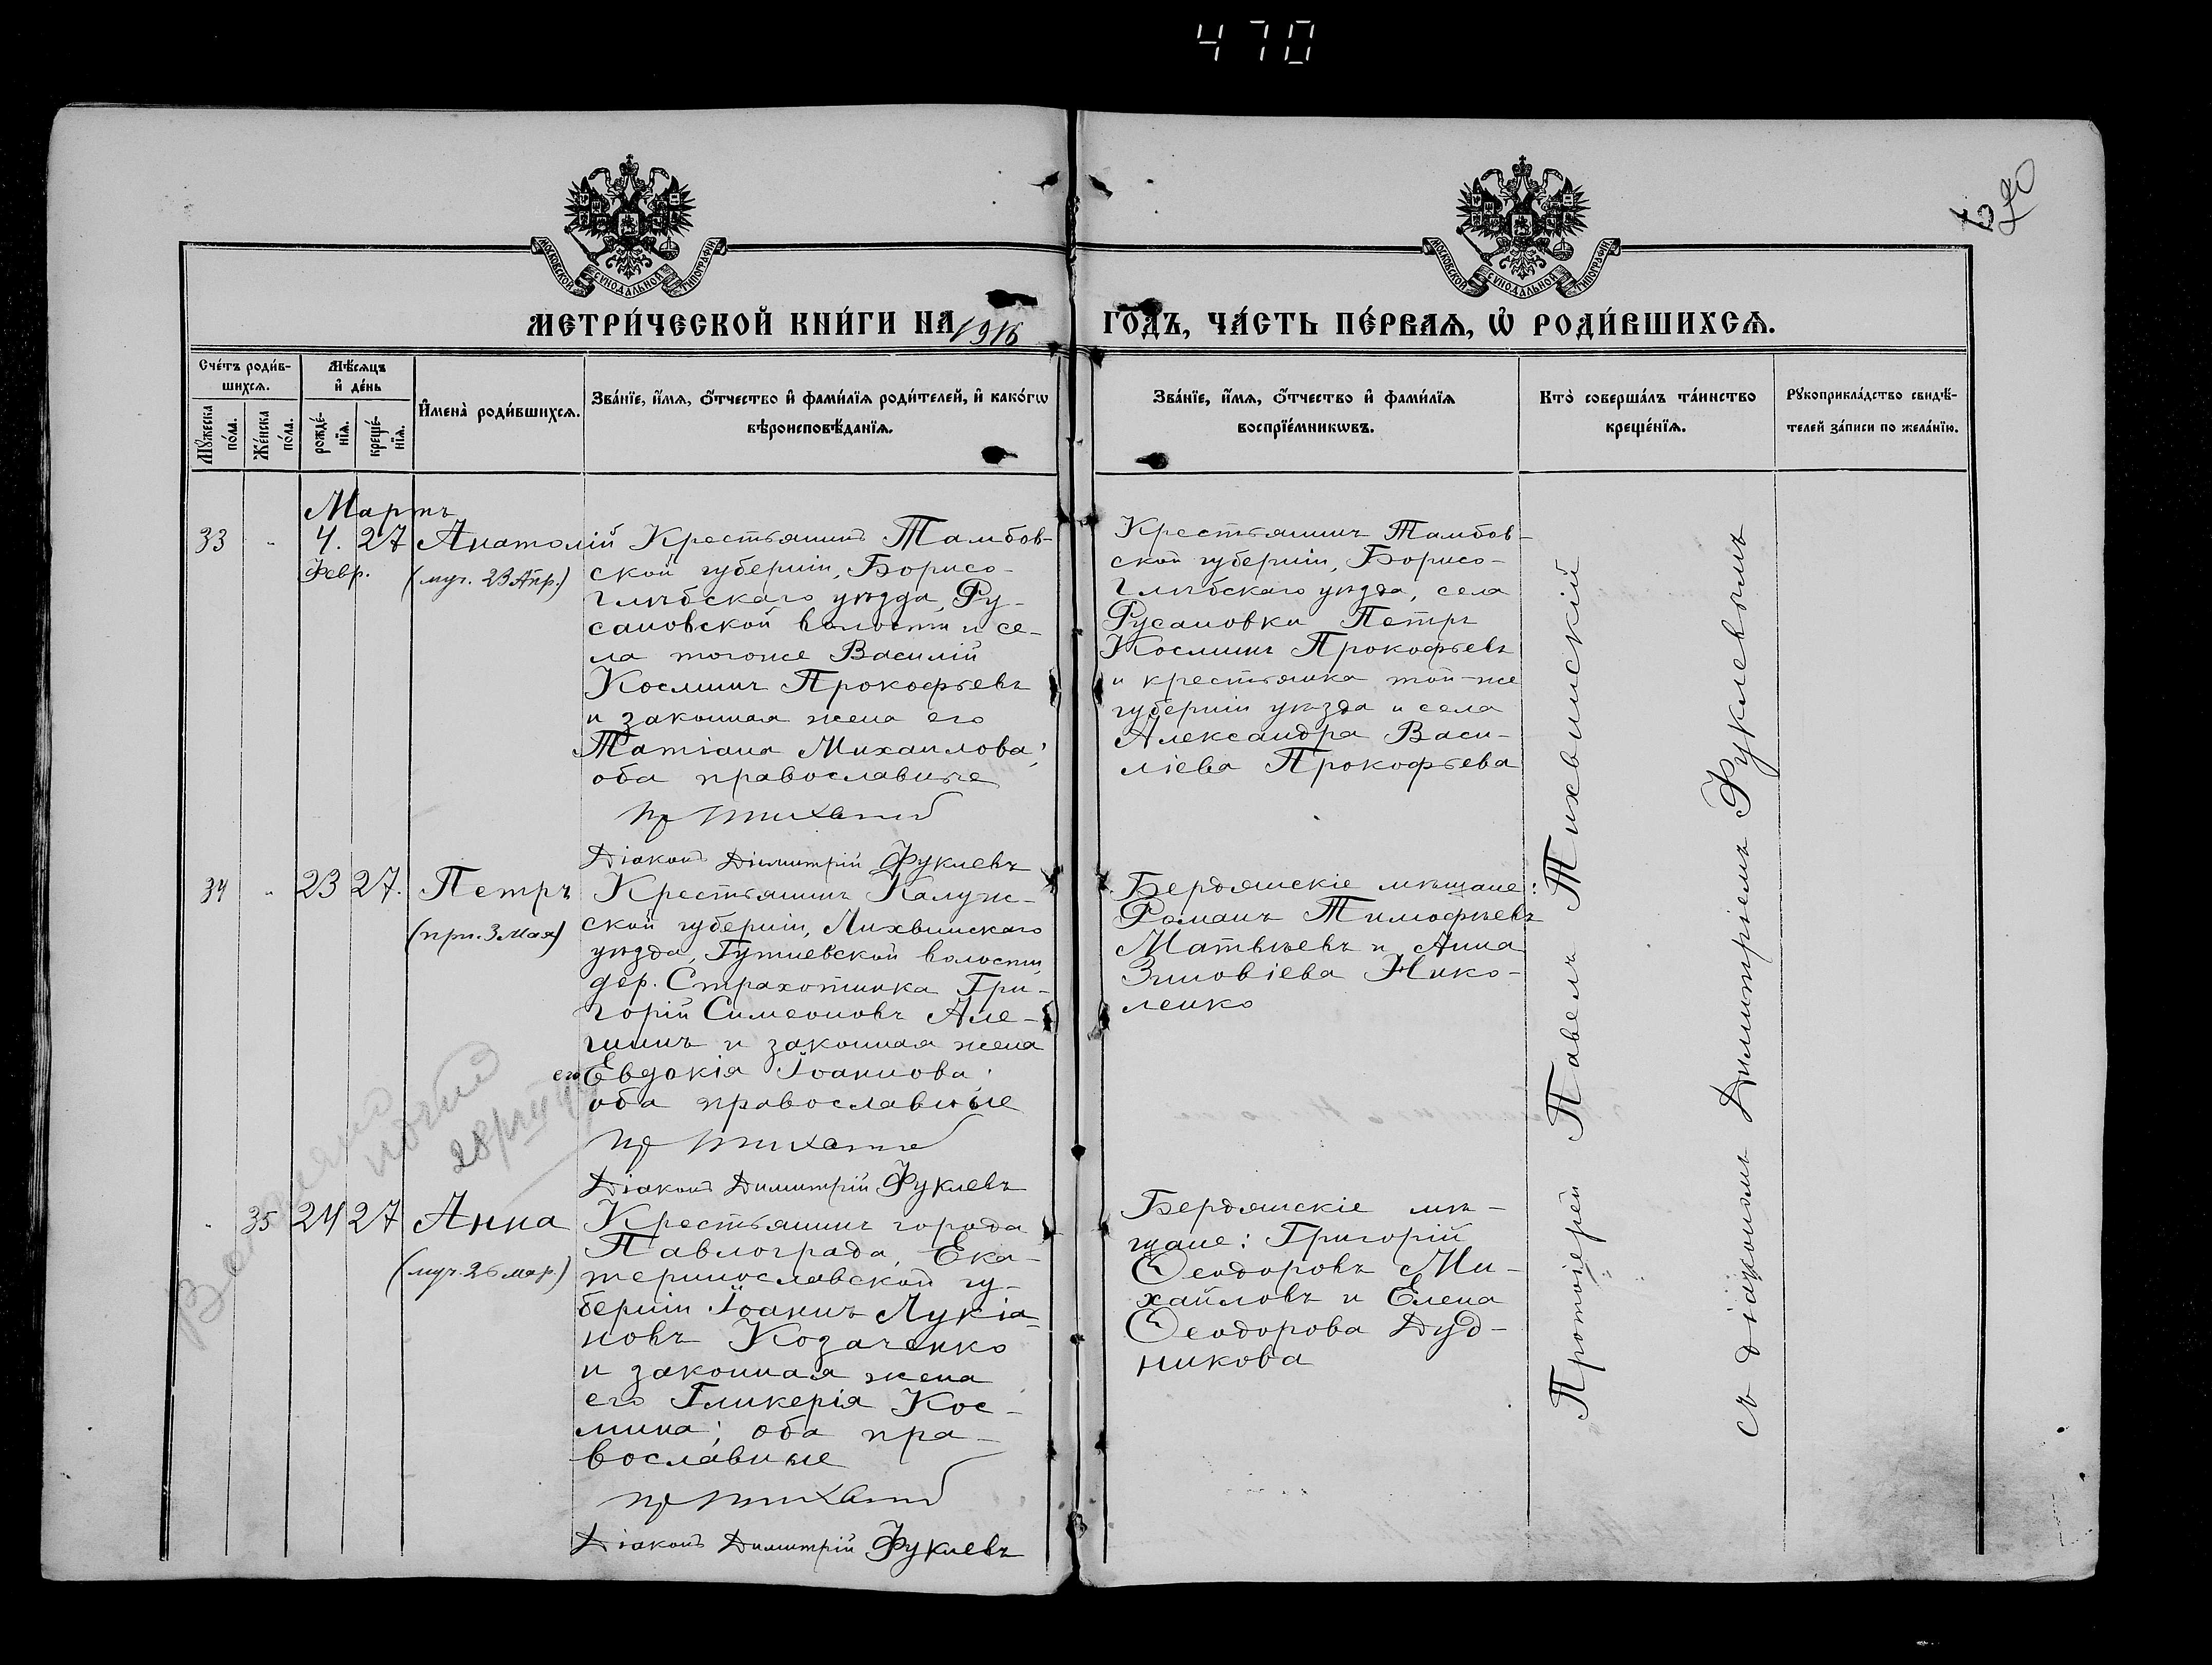 470
МОСКОВСКОЙ СѴНОДАЛЬНОЙ ТИПОГРАФІИ
МОСКОВСКОЙ СѴНОДАЛЬНОЙ ТИПОГРАФІИ
МЕТРИ́ЧЕСКОЙ КНИ́ГИ НА 1916
ГО́ДЪ, ЧА́СТЬ ПЕ́РВАѦ, Ѡ҆ РОДИ́ВШИХСѦ.
Сче́тъ роди́в-
шихсѧ.
Мꙋ́жеска
по́ла.
Же́нска
по́ла.
Мѣ́сѧцъ
и҆ де́нь
рожде́-
нїѧ.
креще́-
нїѧ.
И҆мена̀ роди́вшихсѧ.
Зва́нїе, и҆́мѧ, ѻ҆́тчество и҆ фами́лїѧ роди́телей, и҆ како́гѡ
вѣроисповѣ́данїѧ.
Зва́нїе, и҆́мѧ, ѻ҆́тчество и҆ фами́лїѧ
воспрїе́мникѡвъ.
Кто̀ соверша́лъ та́инство
креще́нїѧ.
Рꙋкоприкла́дство свидѣ́-
телей за́писи по жела́нїю.
Мартъ
33 " 4. 27 Анатолій
Февр. (муч. 23 Апр.)
Крестьянинъ Тамбов-
ской губерніи, Борисо-
глѣбскаго уѣзда, Ру-
сановской волости и се-
ла тогоже Василій
Косминъ Прокофьевъ
и законная жена его
Татіана Михаилова;
оба православные
Діаконъ Димитрій Фуклевъ
Крестьянинъ Тамбов-
ской губерніи, Борисо-
глѣбскаго уѣзда, села
Русановки Петръ
Косминъ Прокофьевъ
и крестьянка той-же
губерніи уѣзда и села
Александра Васи-
ліева Прокофьева
34 " 23 27. Петръ
(прп. 3 Мая)
Крестьянинъ Калуж-
ской губерніи, Лихвинскаго
уѣзда, волости,
дер. Страхотинка Гри-
горій Симеоновъ Але-
и законная жена
его Евдокія Іоаннова;
оба православные
Діаконъ Димитрій Фуклевъ
Бердянскіе мѣщане:
Романъ Тимофѣевъ
Матвѣевъ и Анна
Зиновіева Нико-
ленко
" 35 24 27 Анна
(муч. 26 мар.)
Крестьянинъ города
Павлограда, Ека-
теринославской гу-
берніи Іоаннъ Лукіа-
новъ Козаченко
и законная жена
его Гликерія Кос-
мина; оба пра-
вославные
Діаконъ Димитрій Фуклевъ
Бердянскіе мѣ-
щане: Григорій
Ѳеодоровъ Ми-
хайловъ и Елена
Ѳеодорова Дуд-
никова
Протоіерей Павелъ Тихвинскій
съ діакономъ Димитріемъ Фуклевымъ